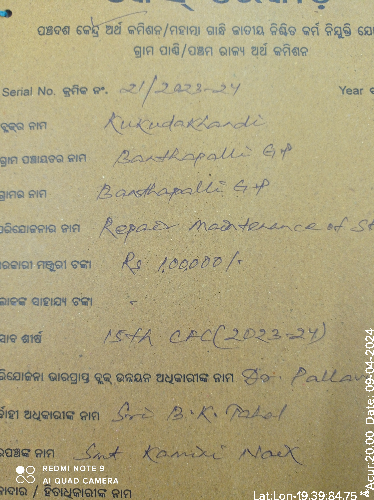 ପଞ୍ଚଦଶ କେନ୍ଦ୍ର ଅର୍ଥ କମିଶନ/ମହାତ୍ମା ଗାନ୍ଧି ଜାତୀୟ ନିଶ୍ଚିତ କର୍ମ ନିଯୁକ୍ତି ଯୋ
ଗ୍ରାମ ପାଣ୍ଠି/ପଞ୍ଚମ ରାଜ୍ୟ ଅର୍ଥ କମିଶନ
Serial No. କ୍ରମିକ ନଂ. 21/2023-24 Year
ବ୍ଲକ୍‌ର ନାମ Kukudakhandi
ଗ୍ରାମ ପଞ୍ଚାୟତର ନାମ Banthapalli GP
ଗ୍ରାମର ନାମ Banthapalli GP
ପରିଯୋଜନାର ନାମ Repair maintenance of St
ସରକାରୀ ମଞ୍ଜୁରୀ ଟଙ୍କା Rs 1,00,000/-
ଲୋକଙ୍କ ସାହାଯ୍ୟ ଟଙ୍କା -
ଶୀର୍ଷ 15th CFC (2023-24)
ପରିଯୋଜନା ଭାରପ୍ରାପ୍ତ ବ୍ଲକ୍ ଉନ୍ନୟନ ଅଧିକାରୀଙ୍କ ନାମ Pallav
ଅଧିକାରୀଙ୍କ ନାମ Sri B.K.
ସରପଞ୍ଚଙ୍କ ନାମ Smt Kamini Naik
/ ହିତାଧିକାରୀଙ୍କ ନାମ
REDMI NOTE 9
AI QUAD CAMERA
Lat:Lon-19.39:84.75
Acur:20.00, Date: 09-04-2024